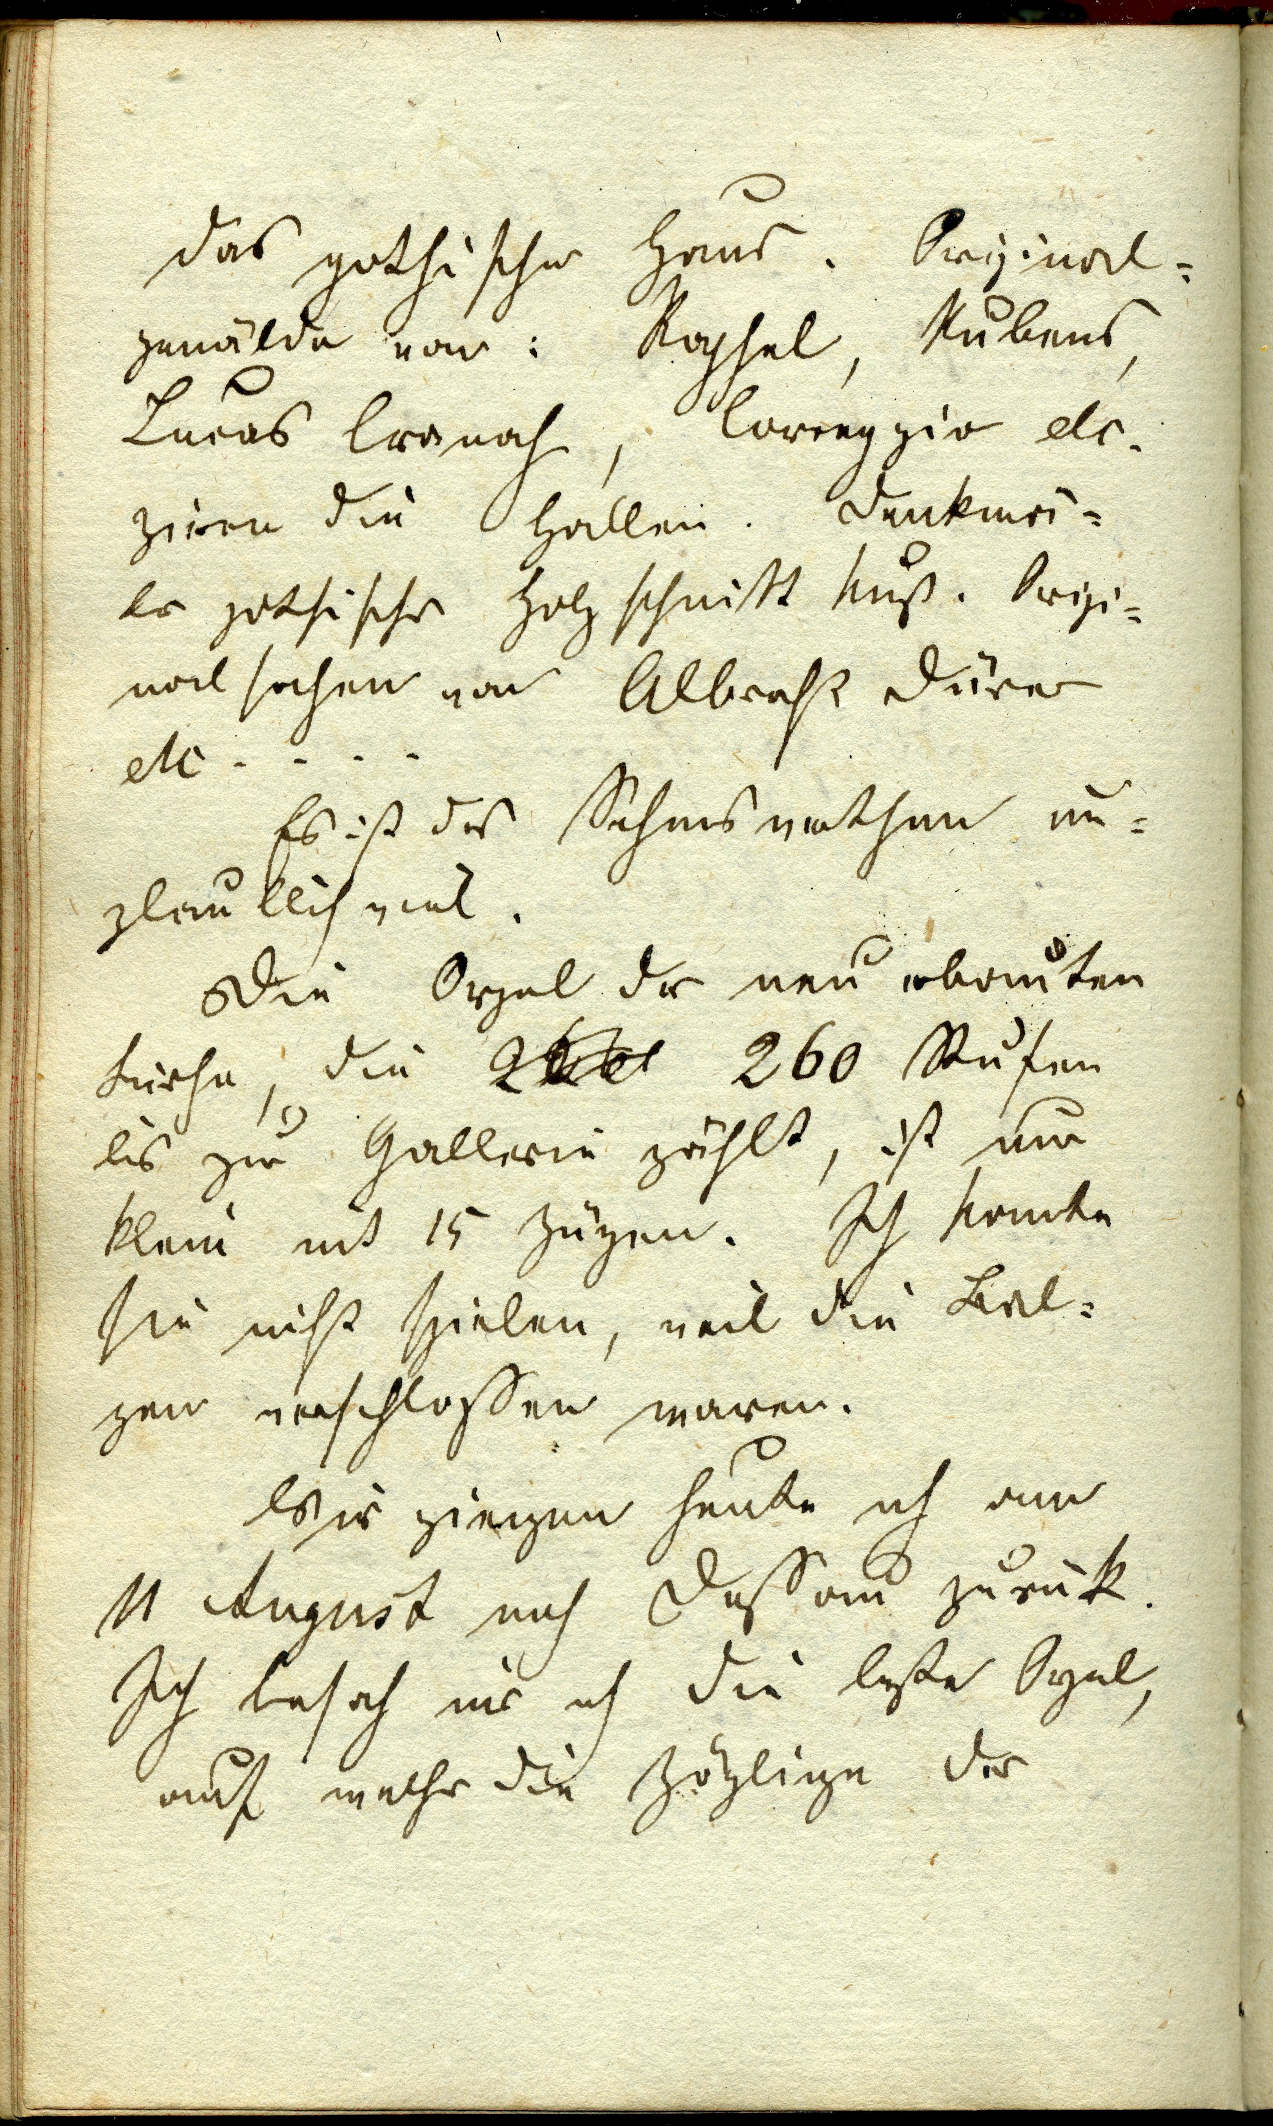 das gothische Haus. Original-
gemälde von: Raphel, Rubens,
Lucas Cranach, Coreggio etc.
zieren die Hallen. Denkmä-
ler gothische Holzschnitt Kuß. Origi-
nal sachen von Albrecht Dürer
etc - - - -
Es ist des Sehenswerthen un-
glaublich viel.
Die Orgel der neu erbauten
Kirche, die 260 Stufen
bis zur Gallerie zählt, ist nur
klein mit 15 Zügen. Ich konnte
sie nicht spielen, weil die Bäl-
gen verschlossen waren.
Wir giengen heute noch am
11 August nach Dessau zurük.
Ich besah mir noch die beste Orgel,
auf welcher die Zöglinge der